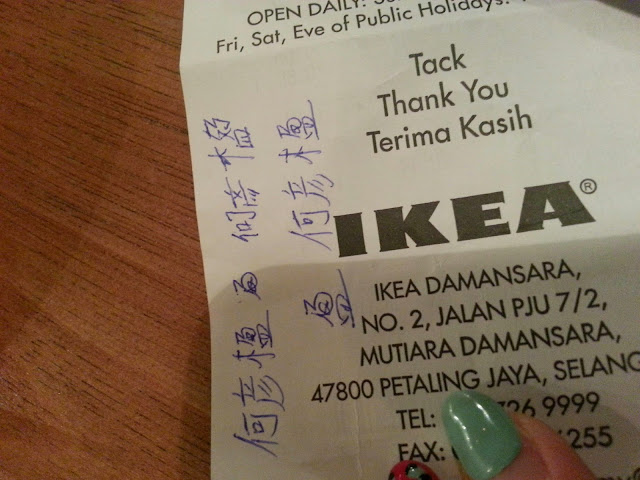 OPEN DAILY:
Fri, Sat, Eve of Public Holidays:
Tack
Thank You
Terima Kasih
IKEA®
IKEA DAMANSARA,
NO. 2, JALAN PJU 7/2,
MUTIARA DAMANSARA,
47800 PETALING JAYA, SELANG
TEL: 726 9999
FAX: 255
何彦
何彦
何彦